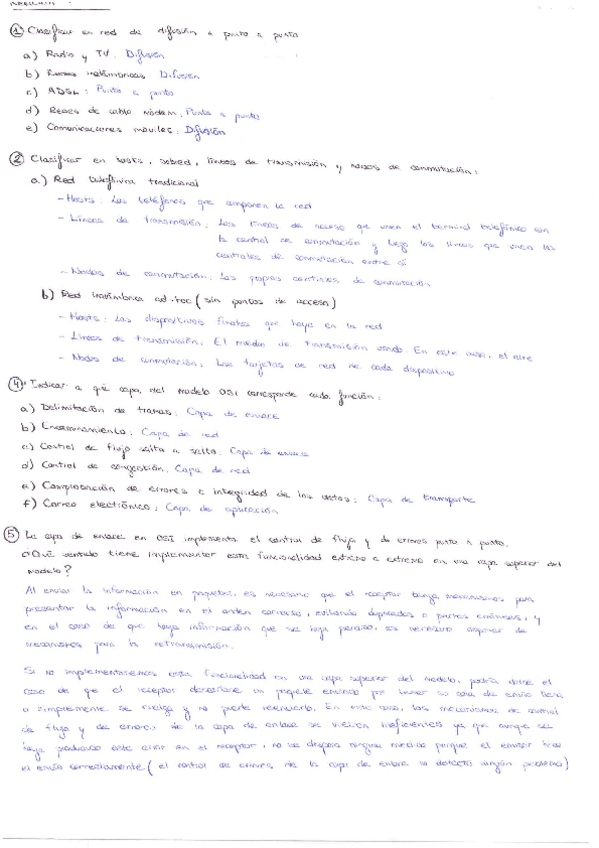 ① Clasificar en red de difusión o punto a punto
a) Radio y TV: Difusión
b) Redes inalámbricas: Difusión
c) ADSL: Punto a punto
d) Redes de cable módem: Punto a punto
e) Comunicaciones móviles: Difusión
② Clasificar en hosts, subred, líneas de transmisión y nodos de conmutación:
a) Red telefónica tradicional
- Hosts: Los teléfonos que componen la red
- Líneas de transmisión: Las líneas de acceso que unen el terminal telefónico con
la central de conmutación y luego las líneas que unen las
centrales de conmutación entre sí
- Nodos de conmutación: Las propias centrales de conmutación
b) Red inalámbrica ad-hoc (sin puntos de acceso)
- Hosts: Los dispositivos finales que haya en la red
- Líneas de transmisión: El medio de transmisión usado. En este caso, el aire
- Nodos de conmutación: Las tarjetas de red de cada dispositivo
④ Indicar a qué capa del modelo OSI corresponde cada función:
a) Delimitación de tramas: Capa de enlace
b) Encaminamiento: Capa de red
c) Control de flujo salto a salto: Capa de enlace
d) Control de congestión: Capa de red
e) Comprobación de errores e integridad de los datos: Capa de transporte
f) Correo electrónico: Capa de aplicación
⑤ La capa de enlace en OSI implementa el control de flujo y de errores punto a punto.
¿Qué sentido tiene implementar esta funcionalidad extremo a extremo en una capa superior del
modelo?
Al enviar la información en paquetes, es necesario que el receptor tenga mecanismos para
presentar la información en el orden correcto, evitando duplicados o partes erróneas, y
en el caso de que haya información que se haya perdido, es necesario disponer de
mecanismos para la retransmisión.
Si no implementásemos esta funcionalidad en una capa superior del modelo, podría darse el
caso de que el receptor descartase un paquete enviado por tener su cola de envío llena
o simplemente se cuelga y no puede reenviarlo. En este caso, los mecanismos de control
de flujo y de errores de la capa de enlace se vuelven ineficientes ya que aunque se
haya producido este error en el receptor, no se dispone ninguna medida porque el emisor hizo
el envío correctamente (el control de errores de la capa de enlace no detectó ningún problema)